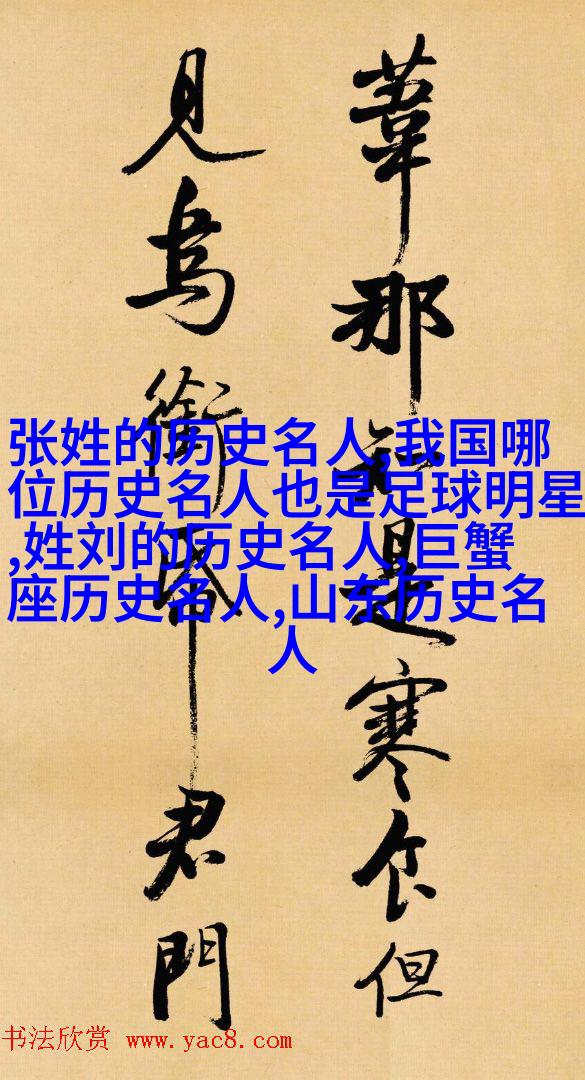 葦那知是寒食但
見烏銜帋君門
张姓的历史名人,我国哪
位历史名人也是足球明星
,姓刘的历史名人,巨蟹
座历史名人,山东历史名
人
书法欣赏 www.yac8.com